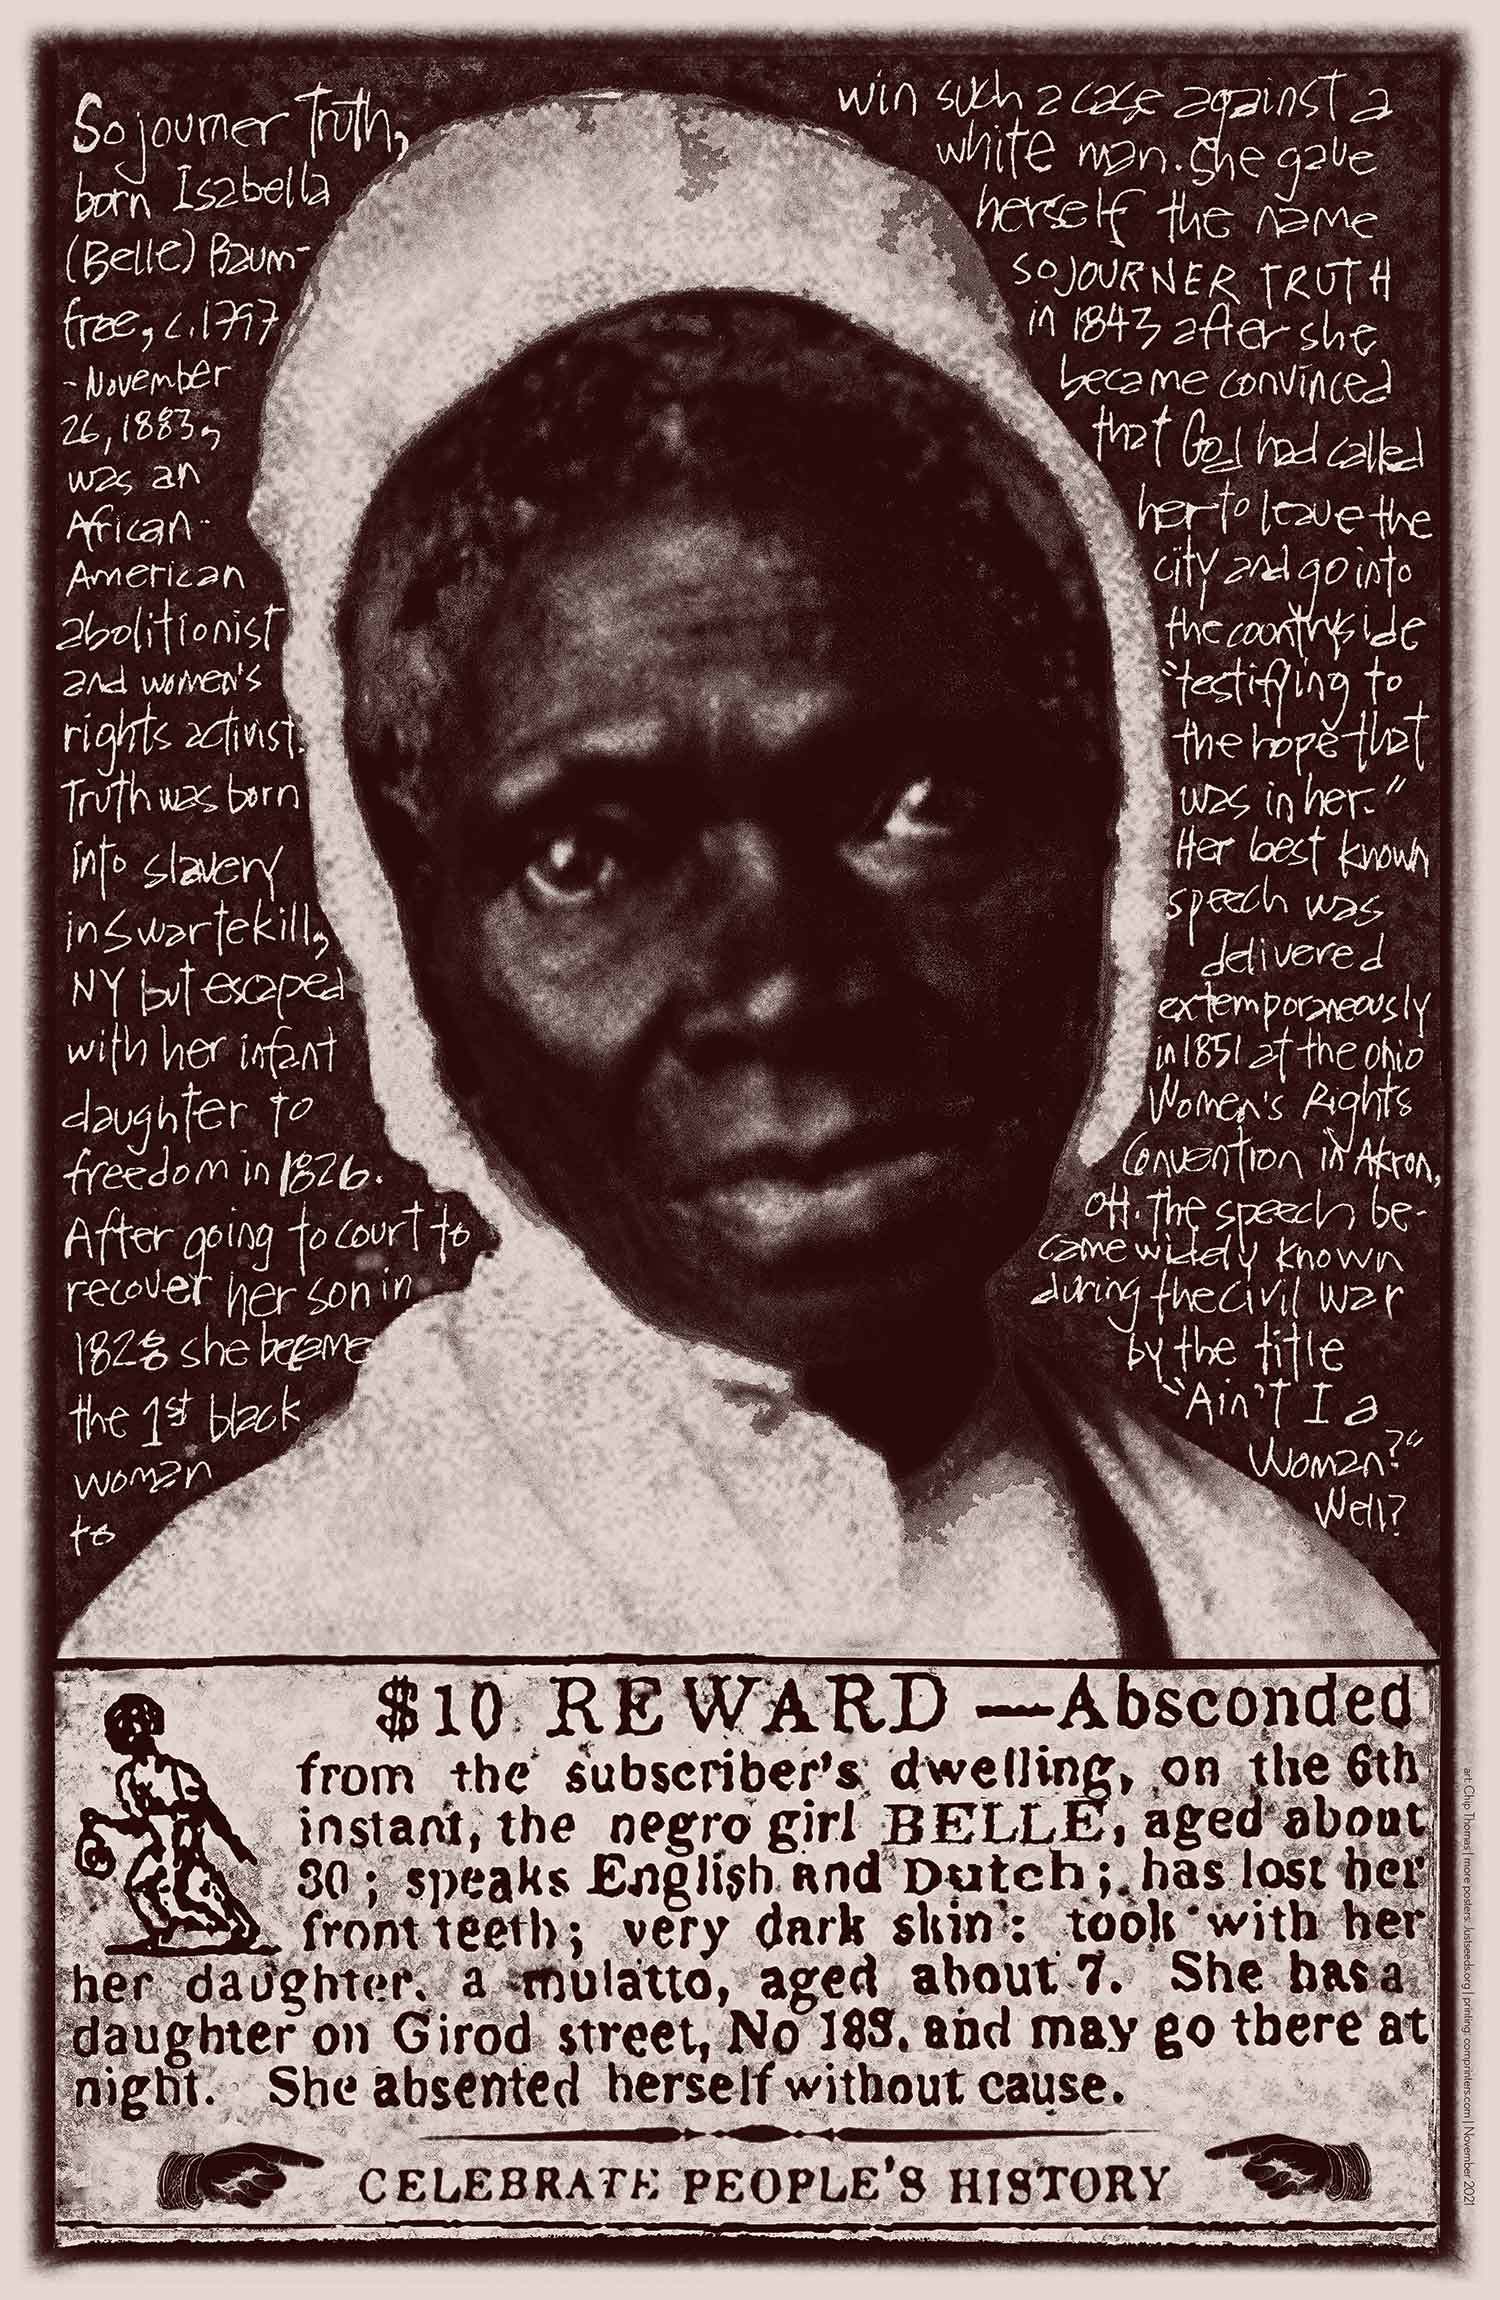 Sojourner Truth,
born Isabella
(Belle) Baum-
free, c.1797
- November
26, 1883,
was an
African-
American
abolitionist
and women's
rights activist.
Truth was born
into slavery
in Swartekill,
NY but escaped
with her infant
daughter to
freedom in 1826.
After going to court to
recover her son in
1828 she became
the 1st black
woman
to
win such a case against a
white man. She gave
herself the name
SOJOURNER TRUTH
in 1843 after she
became convinced
that God had called
her to leave the
city and go into
the countryside
"testifying to
the hope that
was in her."
Her best known
speech was
delivered
extemporaneously
in 1851 at the Ohio
Women's Rights
Convention in Akron,
OH. The speech be-
came widely known
during the Civil War
by the title
"Ain't I a
Woman?"
Well?
$10 REWARD —Absconded
from the subscriber's dwelling, on the 6th
instant, the negro girl BELLE, aged about
30; speaks English and Dutch; has lost her
front teeth; very dark skin: took with her
her daughter, a mulatto, aged about 7. She has a
daughter on Girod street, No 189, and may go there at
night. She absented herself without cause.
CELEBRATE PEOPLE'S HISTORY
art: Chip Thomas | more posters: Justseeds.org | printing: comprinters.com | November 2021